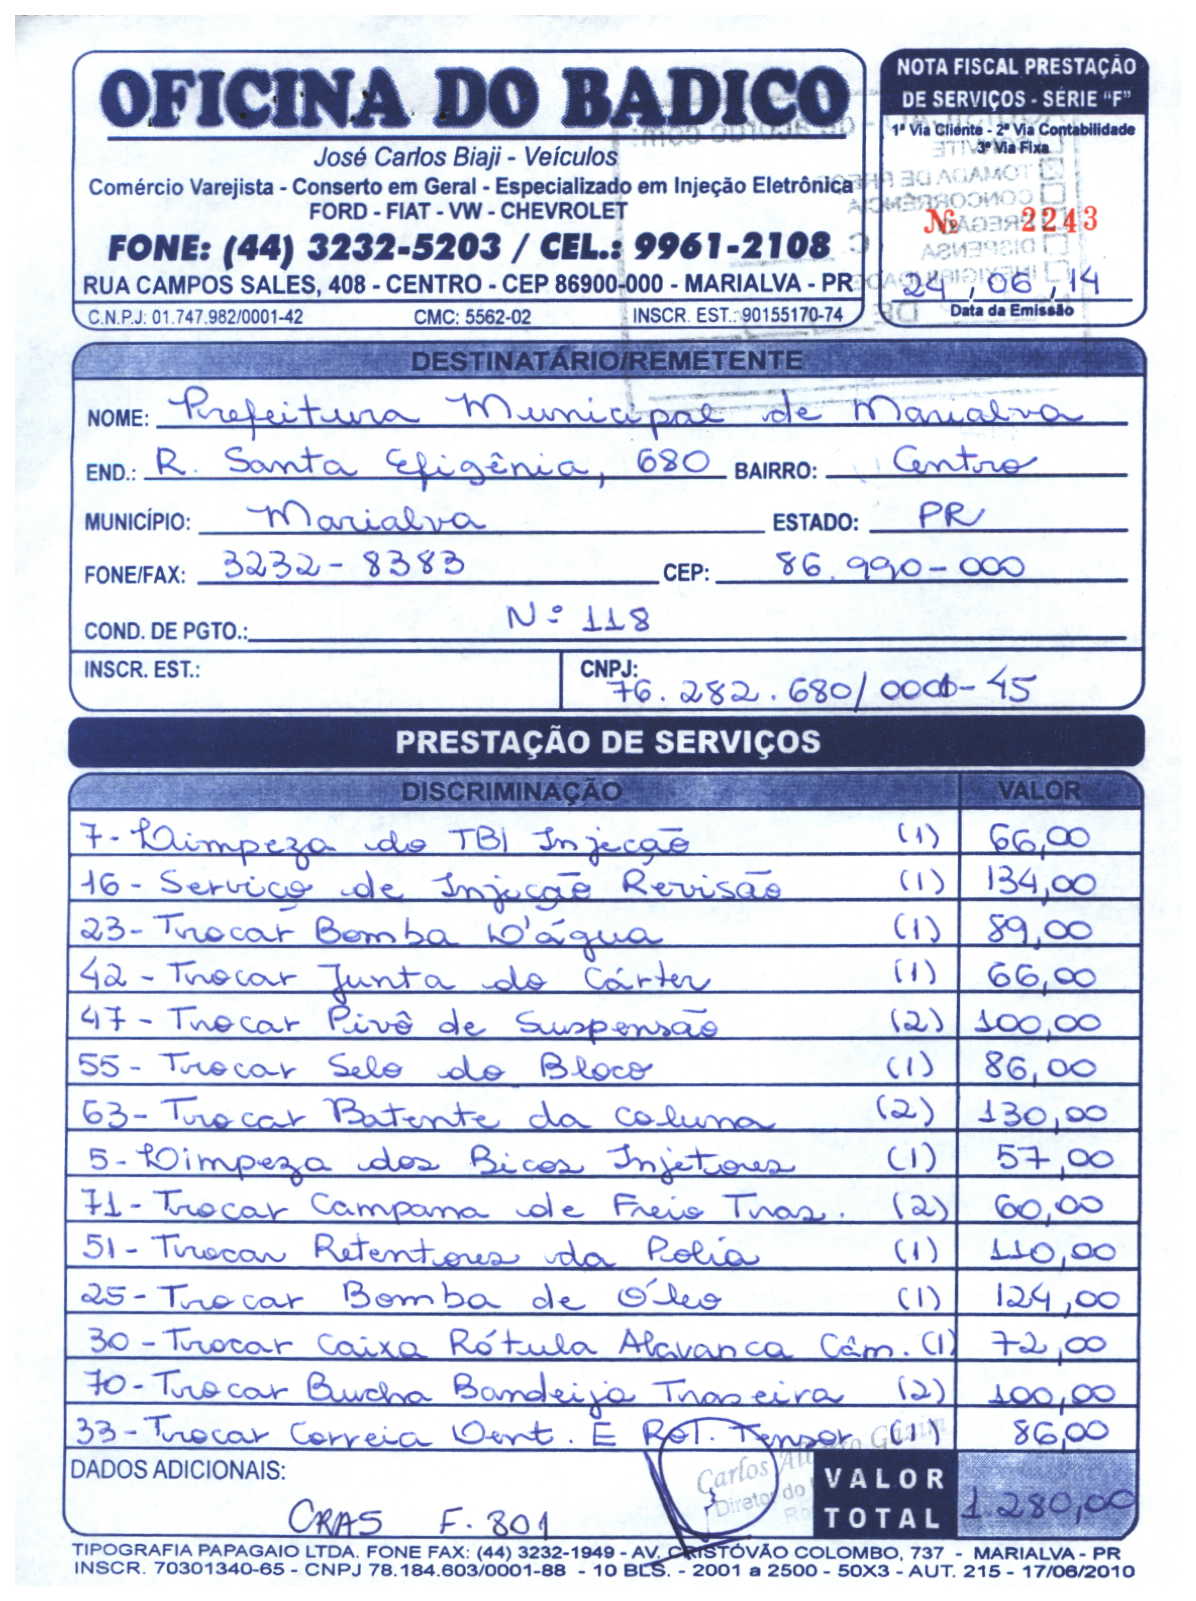 OFICINA DO BADICO
José Carlos Biaji - Veículos
Comércio Varejista - Conserto em Geral - Especializado em Injeção Eletrônica
FORD - FIAT - VW - CHEVROLET
FONE: (44) 3232-5203 / CEL.: 9961-2108
RUA CAMPOS SALES, 408 - CENTRO - CEP 86900-000 - MARIALVA - PR
C.N.P.J: 01.747.982/0001-42 CMC: 5562-02 INSCR. EST.: 90155170-74
NOTA FISCAL PRESTAÇÃO
DE SERVIÇOS - SÉRIE "F"
1ª Via Cliente - 2ª Via Contabilidade
3ª Via Fixa
Nº 2243
24 / 06 / 14
Data da Emissão
DESTINATÁRIO/REMETENTE
NOME: Prefeitura Municipal de Marialva
END.: R. Santa Efigênia, 680 BAIRRO: Centro
MUNICÍPIO: Marialva ESTADO: PR
FONE/FAX: 3232-8383 CEP: 86.990-000
COND. DE PGTO.: Nº 118
INSCR. EST.: CNPJ: 76.282.680/0001-45
PRESTAÇÃO DE SERVIÇOS
DISCRIMINAÇÃO VALOR
7- Limpeza do TBI Injeção (1) 66,00
16- Serviço de Injeção Revisão (1) 134,00
23- Trocar Bomba D'água (1) 89,00
42- Trocar Junta do Cárter (1) 66,00
47- Trocar Pivô de Suspensão (2) 100,00
55- Trocar Selo do Bloco (1) 86,00
63- Trocar Batente da coluna (2) 130,00
5- Limpeza dos Bicos Injetores (1) 57,00
71- Trocar Campana de Freio Tras. (2) 60,00
51- Trocar Retentores da Polia (1) 110,00
25- Trocar Bomba de Óleo (1) 124,00
30- Trocar Caixa Rótula Alavanca Câm. (1) 72,00
70- Trocar Bucha Bandeija Traseira (2) 100,00
33- Trocar Correia Dent. E Rol. Tensor (1) 86,00
DADOS ADICIONAIS:
CRAS F. 801
Carlos
Diretor do
VALOR TOTAL 1.280,00
TIPOGRAFIA PAPAGAIO LTDA. FONE FAX: (44) 3232-1949 - AV. CRISTÓVÃO COLOMBO, 737 - MARIALVA - PR
INSCR. 70301340-65 - CNPJ 78.184.603/0001-88 - 10 BLS. - 2001 a 2500 - 50X3 - AUT. 215 - 17/06/2010